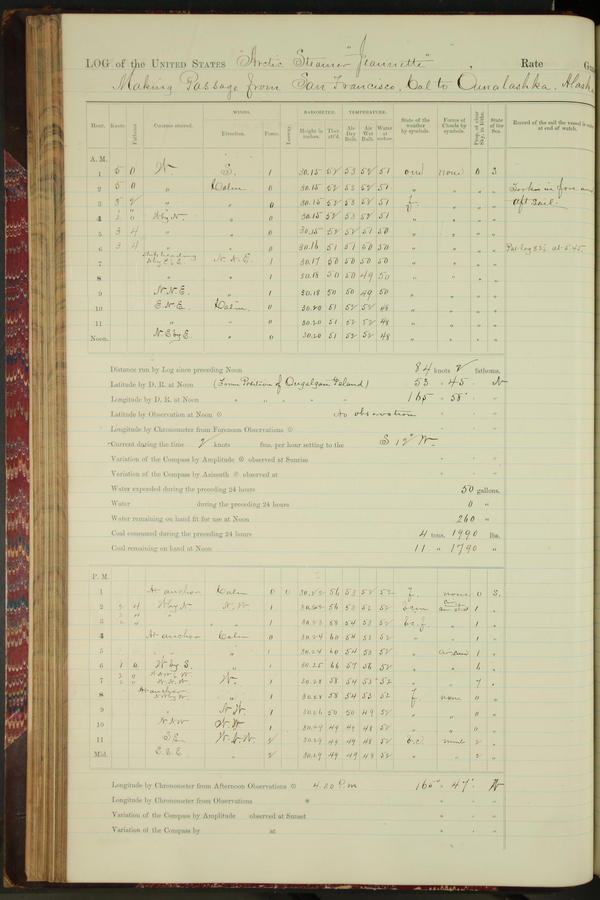 LOG of the UNITED STATES "Arctic Steamer" "Jeannette", Rate
Making Passage from San Francisco, Cal to Ounalashka, Alask
Hour. Knots. Fathoms. Courses steered. WINDS. Direction. Force. Leeway. BAROMETER. Height in inches. Ther. att'd. TEMPERATURE. Air Dry Bulb. Air Wet Bulb. Water at Surface. State of the weather by symbols. Forms of Clouds by symbols. Prop. of clear Sky, in 10ths. State of the Sea. Record of the sail the vessel is under at end of watch.
A. M.
1 5 0 W. S. 1 30.15 52 53 52 51 none 0 3
2 5 0 " Calm 0 30.15 52 53 52 51 " " " Took in fore and
3 " " 0 30.15 52 53 52 51 f. " " " aft sail.
4 W by N. " 0 30.15 52 53 52 51 " " " "
5 3 4 " " 0 30.15 52 52 51 50 " " " "
6 3 4 " " 0 30.16 51 51 50 50 " " " " Pat. log 83½ at 5.45
7 N. N. E. 1 30.17 50 50 50 50 " " " "
8 " " 1 30.18 50 50 49 50 " " " "
9 N. N. E. " 1 30.18 50 50 49 50 " " " "
10 E. N. E. Calm 0 30.20 51 52 52 48 " " " "
11 " " 0 30.20 51 52 52 48 " " " "
Noon. N. E by E. " 0 30.20 51 52 52 48 " " " "
Distance run by Log since preceding Noon 84 knots 2 fathoms.
Latitude by D. R. at Noon (From Position of Ougalgan Island) 53 ° 45 ' N
Longitude by D. R. at Noon " " " " 165 ° 58 ' "
Latitude by Observation at Noon No observation
Longitude by Chronometer from Forenoon Observations
Current during the time 2 knots fms. per hour setting to the S 12° W
Variation of the Compass by Amplitude observed at Sunrise
Variation of the Compass by Azimuth observed at
Water expended during the preceding 24 hours 50 gallons.
Water during the preceding 24 hours 0 "
Water remaining on hand fit for use at Noon 260 "
Coal consumed during the preceding 24 hours 4 tons. 1990 lbs.
Coal remaining on hand at Noon 11 " 1790 "
P. M.
1 At anchor Calm 0 0 30.22 56 53 52 52 f. none 0 S.
2 2 4 W by N. N. W. 1 30.22 56 53 52 52 1 "
3 " " 1 30.23 58 54 53 52 bc. f. " 1 "
4 At anchor Calm 0 30.24 60 54 53 52 " " 1 "
5 " " " 30.24 60 54 53 52 " 1 "
6 1 0 W by S. " 1 30.25 66 57 56 52 " " 6 "
7 W. 1 30.28 58 54 53 52 " " 7 "
8 At anchor " 1 30.28 58 54 53 52 f none 0 "
9 N. W. 1 30.26 50 50 49 52 " " 0 "
10 N. N. W W. W 1 30.29 49 49 48 52 " " 0 "
11 S. E. W. N. W. 2 30.29 49 49 48 52 b.c. 2 "
Mid. E. S. E. " 2 30.29 49 49 48 52 " " 2 "
Longitude by Chronometer from Afternoon Observations 4.20 P.m 165 ° 47 ' W
Longitude by Chronometer from Observations
Variation of the Compass by Amplitude observed at Sunset
Variation of the Compass by at